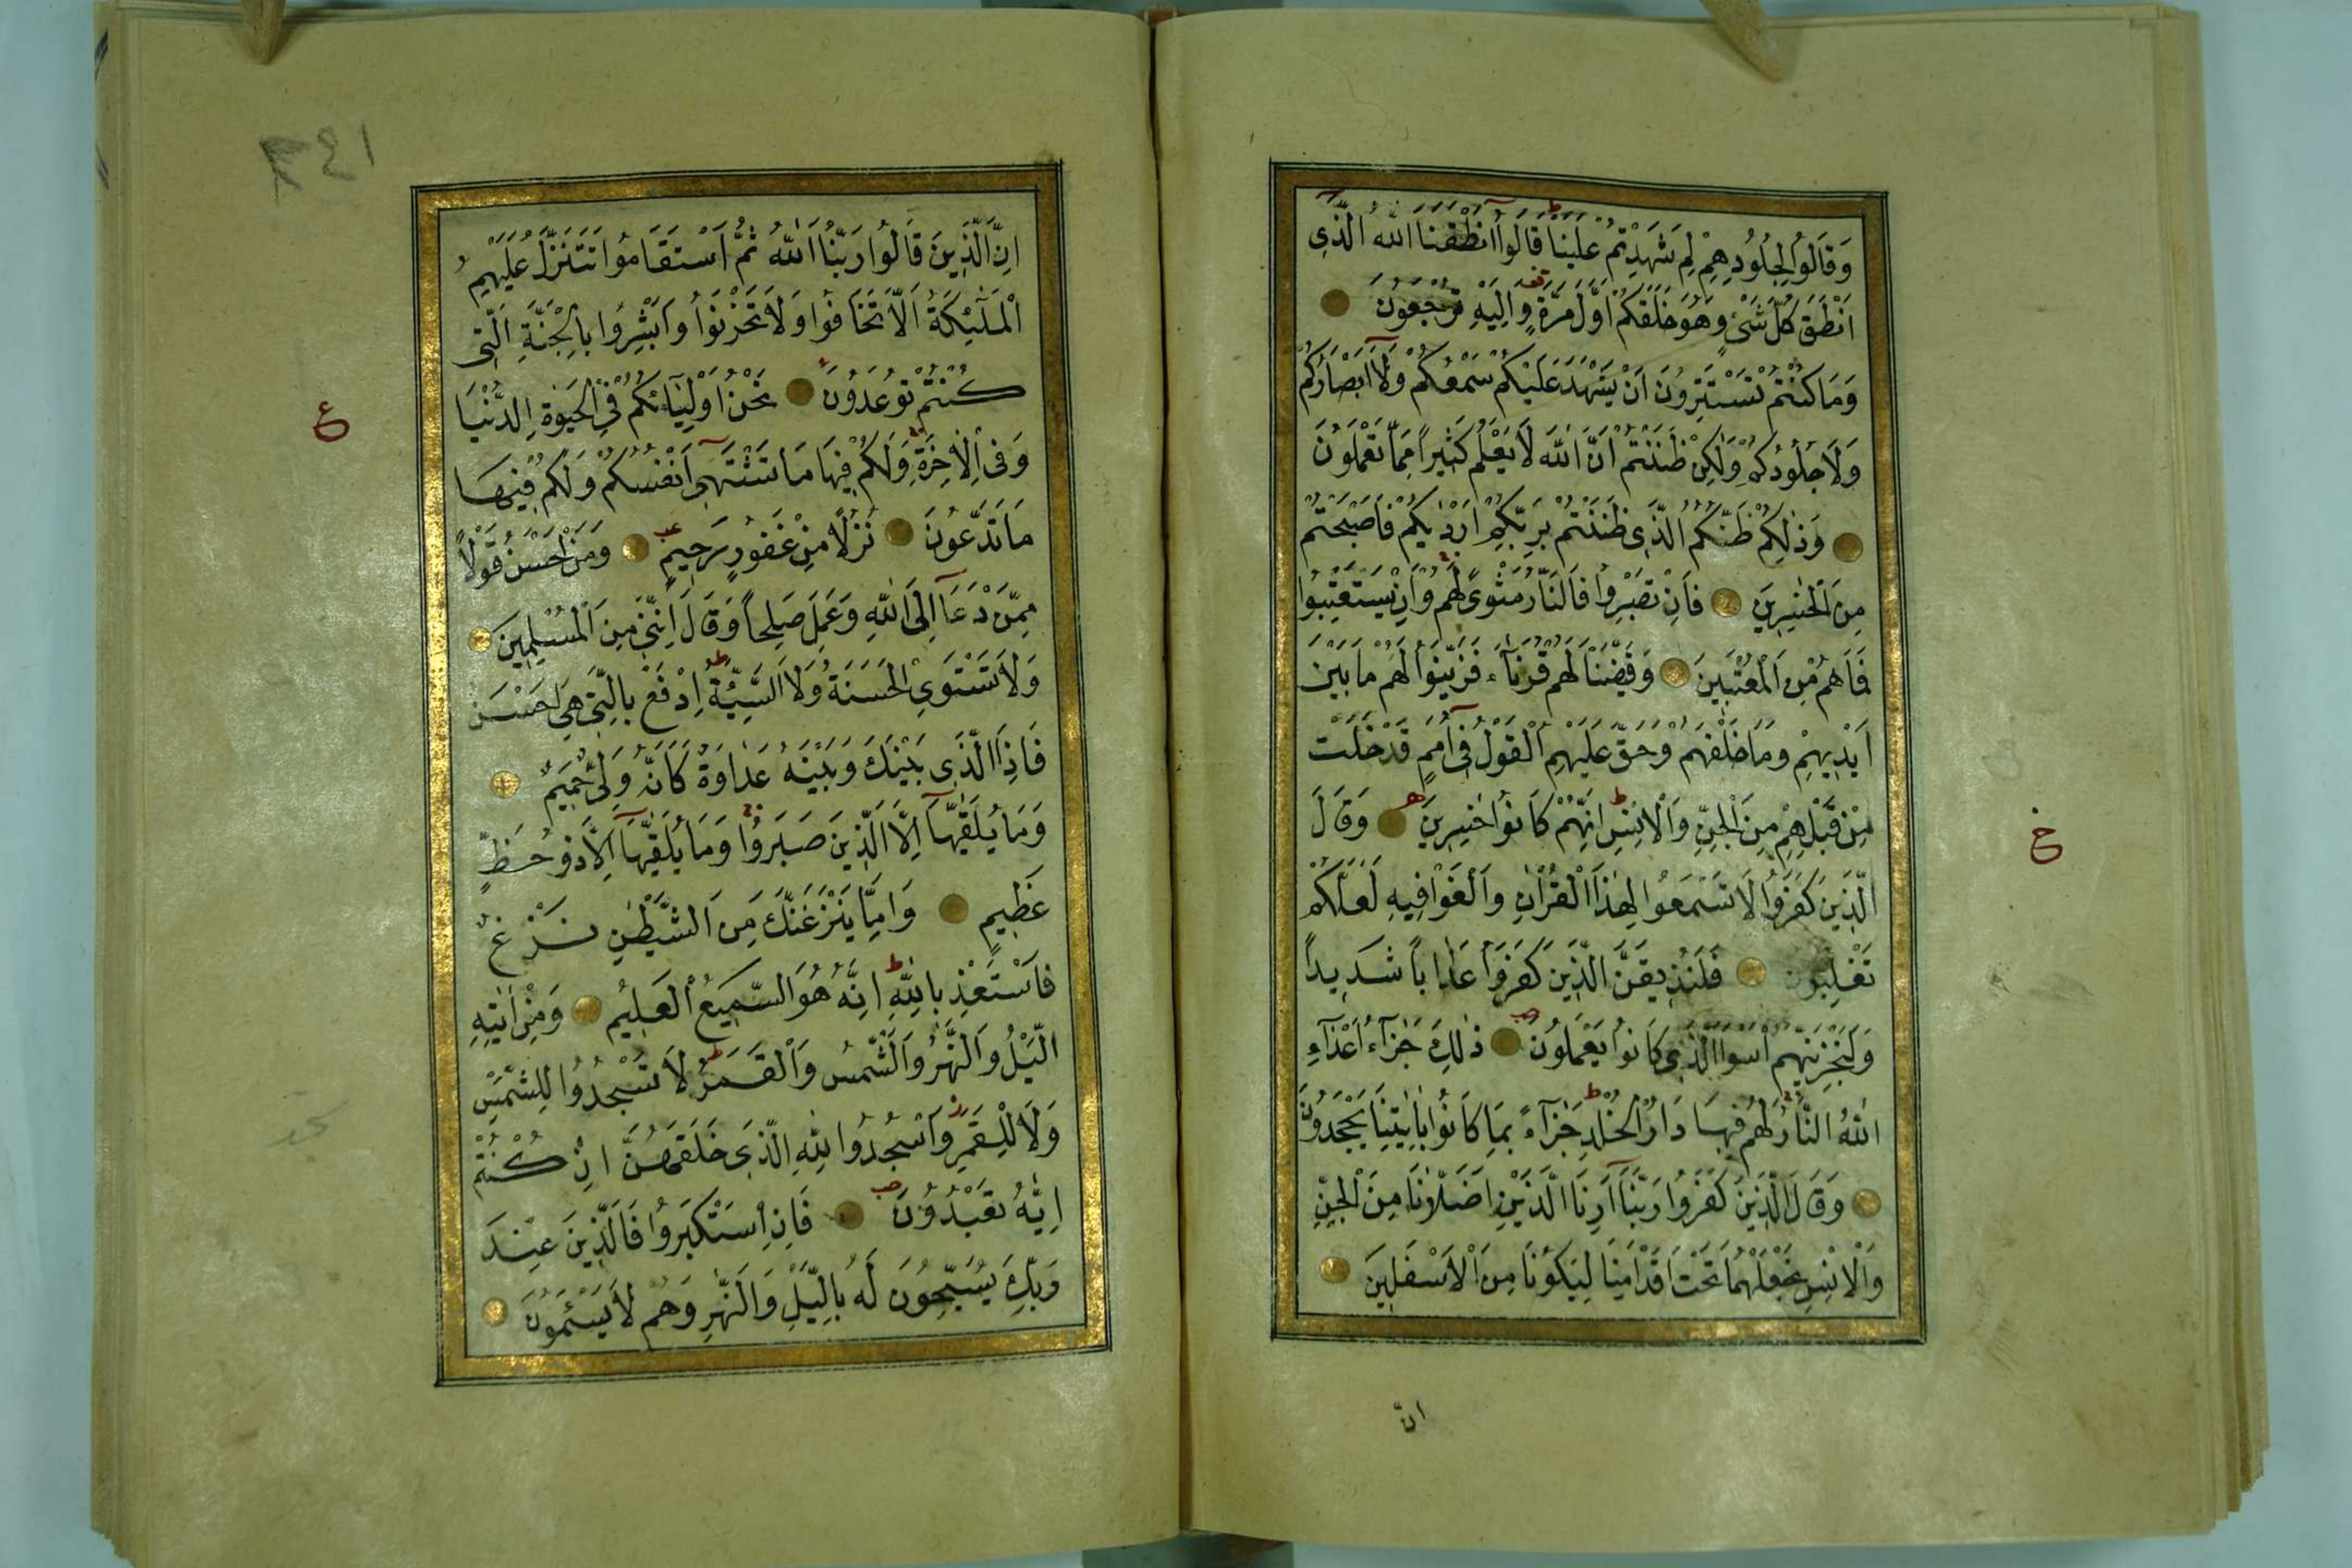 وَقَالُوا لِجُلُودِهِمْ لِمَ شَهِدْتُمْ عَلَيْنَا قَالُوا أَنْطَقَنَا اللّٰهُ الَّذِى
اَنْطَقَ كُلَّ شَىْءٍ وَهُوَ خَلَقَكُمْ اَوَّلَ مَرَّةٍ وَاِلَيْهِ تُرْجَعُونَ
وَمَا كُنْتُمْ تَسْتَتِرُونَ اَنْ يَشْهَدَ عَلَيْكُمْ سَمْعُكُمْ وَلَا اَبْصَارُكُمْ
وَلَا جُلُودُكُمْ وَلٰكِنْ ظَنَنْتُمْ اَنَّ اللّٰهَ لَا يَعْلَمُ كَثِيراً مِمَّا تَعْمَلُونَ
وَذٰلِكُمْ ظَنُّكُمُ الَّذِى ظَنَنْتُمْ بِرَبِّكُمْ اَرْدٰيكُمْ فَاَصْبَحْتُمْ
مِنَ الْخٰسِرِينَ فَاِنْ يَصْبِرُوا فَالنَّارُ مَثْوًى لَهُمْ وَاِنْ يَسْتَعْتِبُوا
فَمَا هُمْ مِنَ الْمُعْتَبِينَ وَقَيَّضْنَا لَهُمْ قُرَنَاءَ فَزَيَّنُوا لَهُمْ مَا بَيْنَ
اَيْدِيهِمْ وَمَا خَلْفَهُمْ وَحَقَّ عَلَيْهِمُ الْقَوْلُ فِى اُمَمٍ قَدْ خَلَتْ
مِنْ قَبْلِهِمْ مِنَ الْجِنِّ وَالْاِنْسِ اِنَّهُمْ كَانُوا خٰسِرِينَ وَقَالَ
الَّذِينَ كَفَرُوا لَا تَسْمَعُوا لِهٰذَا الْقُرْاٰنِ وَالْغَوْا فِيهِ لَعَلَّكُمْ
تَغْلِبُونَ فَلَنُذِيقَنَّ الَّذِينَ كَفَرُوا عَذَاباً شَدِيداً
وَلَنَجْزِيَنَّهُمْ اَسْوَاَ الَّذِى كَانُوا يَعْمَلُونَ ذٰلِكَ جَزَآءُ اَعْدَآءِ
اللّٰهِ النَّارُ لَهُمْ فِيهَا دَارُ الْخُلْدِ جَزَآءً بِمَا كَانُوا بِاٰيٰتِنَا يَجْحَدُونَ
وَقَالَ الَّذِينَ كَفَرُوا رَبَّنَا اَرِنَا الَّذَيْنِ اَضَلَّانَا مِنَ الْجِنِّ
وَالْاِنْسِ نَجْعَلْهُمَا تَحْتَ اَقْدَامِنَا لِيَكُونَا مِنَ الْاَسْفَلِينَ
انّ
خ
٢٤١
اِنَّ الَّذِينَ قَالُوا رَبُّنَا اللّٰهُ ثُمَّ اسْتَقَامُوا تَتَنَزَّلُ عَلَيْهِمُ
الْمَلٰٓئِكَةُ اَلَّا تَخَافُوا وَلَا تَحْزَنُوا وَاَبْشِرُوا بِالْجَنَّةِ الَّتِى
كُنْتُمْ تُوعَدُونَ نَحْنُ اَوْلِيَآئُكُمْ فِى الْحَيٰوةِ الدُّنْيَا
وَفِى الْاٰخِرَةِ وَلَكُمْ فِيهَا مَا تَشْتَهِى اَنْفُسُكُمْ وَلَكُمْ فِيهَا
مَا تَدَّعُونَ نُزُلاً مِنْ غَفُورٍ رَحِيمٍ وَمَنْ اَحْسَنُ قَوْلاً
مِمَّنْ دَعَا اِلَى اللّٰهِ وَعَمِلَ صَلِحاً وَقَالَ اِنَّنِى مِنَ الْمُسْلِمِينَ
وَلَا تَسْتَوِى الْحَسَنَةُ وَلَا السَّيِّئَةُ اِدْفَعْ بِالَّتِى هِىَ اَحْسَنُ
فَاِذَا الَّذِى بَيْنَكَ وَبَيْنَهُ عَدَاوَةٌ كَاَنَّهُ وَلِىٌّ حَمِيمٌ
وَمَا يُلَقّٰيهَآ اِلَّا الَّذِينَ صَبَرُوا وَمَا يُلَقّٰيهَآ اِلَّا ذُو حَظٍّ
عَظِيمٍ وَاِمَّا يَنْزَغَنَّكَ مِنَ الشَّيْطٰنِ نَزْغٌ
فَاسْتَعِذْ بِاللّٰهِ اِنَّهُ هُوَ السَّمِيعُ الْعَلِيمُ وَمِنْ اٰيٰتِهِ
الَّيْلُ وَالنَّهَارُ وَالشَّمْسُ وَالْقَمَرُ لَا تَسْجُدُوا لِلشَّمْسِ
وَلَا لِلْقَمَرِ وَاسْجُدُوا لِلّٰهِ الَّذِى خَلَقَهُنَّ اِنْ كُنْتُمْ
اِيَّاهُ تَعْبُدُونَ فَاِنِ اسْتَكْبَرُوا فَالَّذِينَ عِنْدَ
رَبِّكَ يُسَبِّحُونَ لَهُ بِالَّيْلِ وَالنَّهَارِ وَهُمْ لَا يَسْئَمُونَ
ع